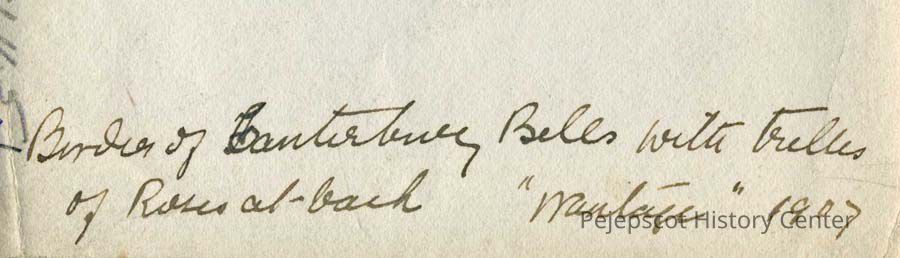 Border of Canterbury Bells with trellis
of Roses at back "Wantage" 1907
Pejepscot History Center